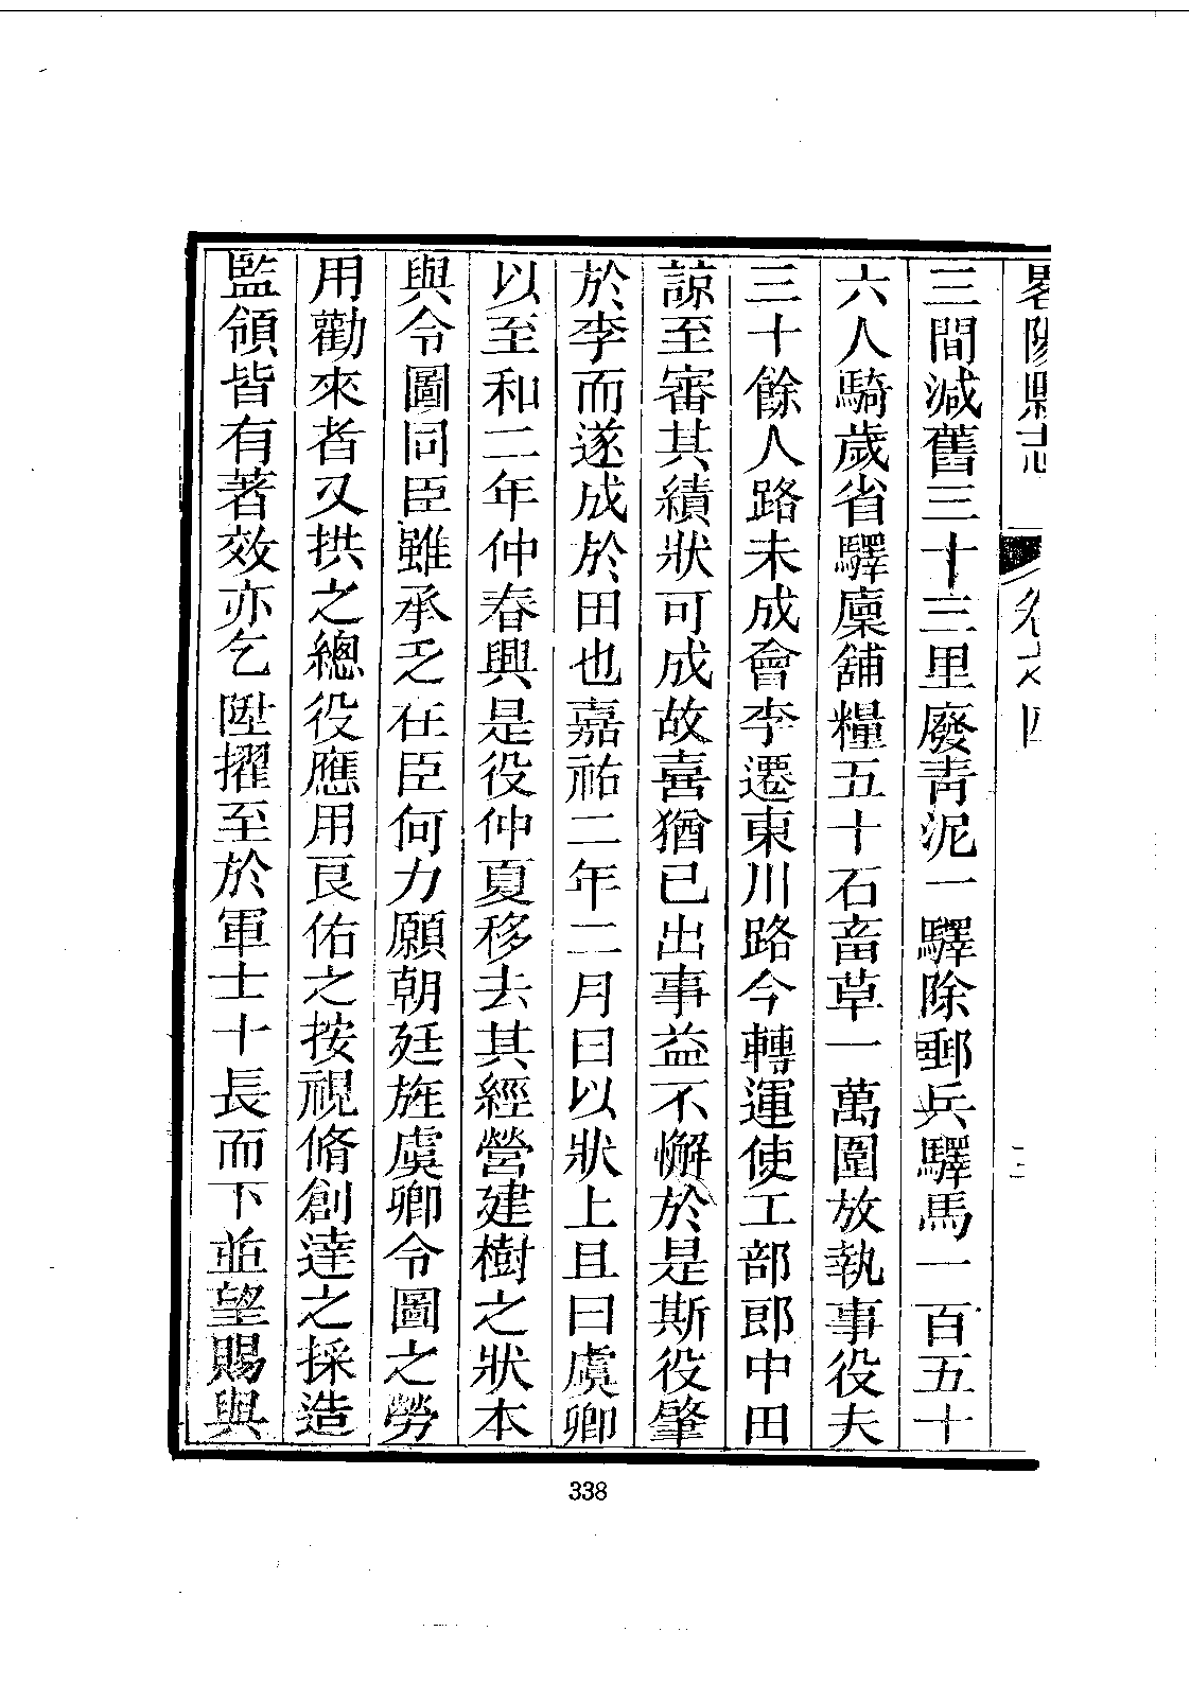 畧陽縣志 卷之四
三間減舊三十三里廢青泥一驛除郵兵驛馬一百五十
六人騎歲省驛廩舖糧五十石畜草一萬圍放執事役夫
三十餘人路未成會李遷東川路今轉運使工部郎中田
諒至審其績狀可成故喜猶已出事益不懈於是斯役肇
於李而遂成於田也嘉祐二年二月曰以狀上且曰虞卿
以至和二年仲春興是役仲夏移去其經營建樹之狀本
與令圖同臣雖承乏在臣何力願朝廷旌虞卿令圖之勞
用勸來者又拱之總役應用良佑之按視脩創達之採造
監領皆有著效亦乞陞擢至於軍士十長而下並望賜與
338